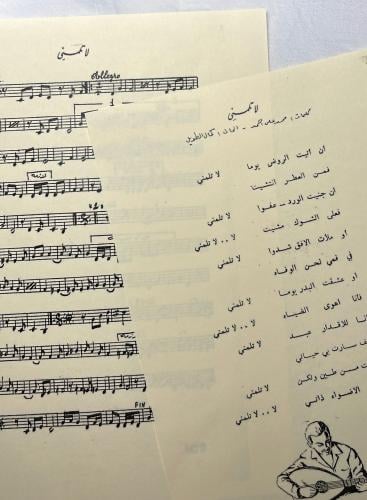 لا تلمني
Allegro
1
FIN
لا تلمني
كلمات : محمد علي - الحان : كمال الطويل
ان اتيت الروض يوما
فمن العطر انتشيت لا تلمني
ان جنيت الورد عفوا
فعلى الشوك مشيت لا تلمني
او ملأت الافق شدوا لا .. لا تلمني
في فمي لحن الوفاء لا تلمني
او عشقت البدر يوما
فانا اهوى الضياء لا تلمني
للاقدار عبد لا .. لا تلمني
سارت بي حياتي لا تلمني
من طين ولكن
الاضواء ذاتي لا تلمني
لا .. لا تلمني